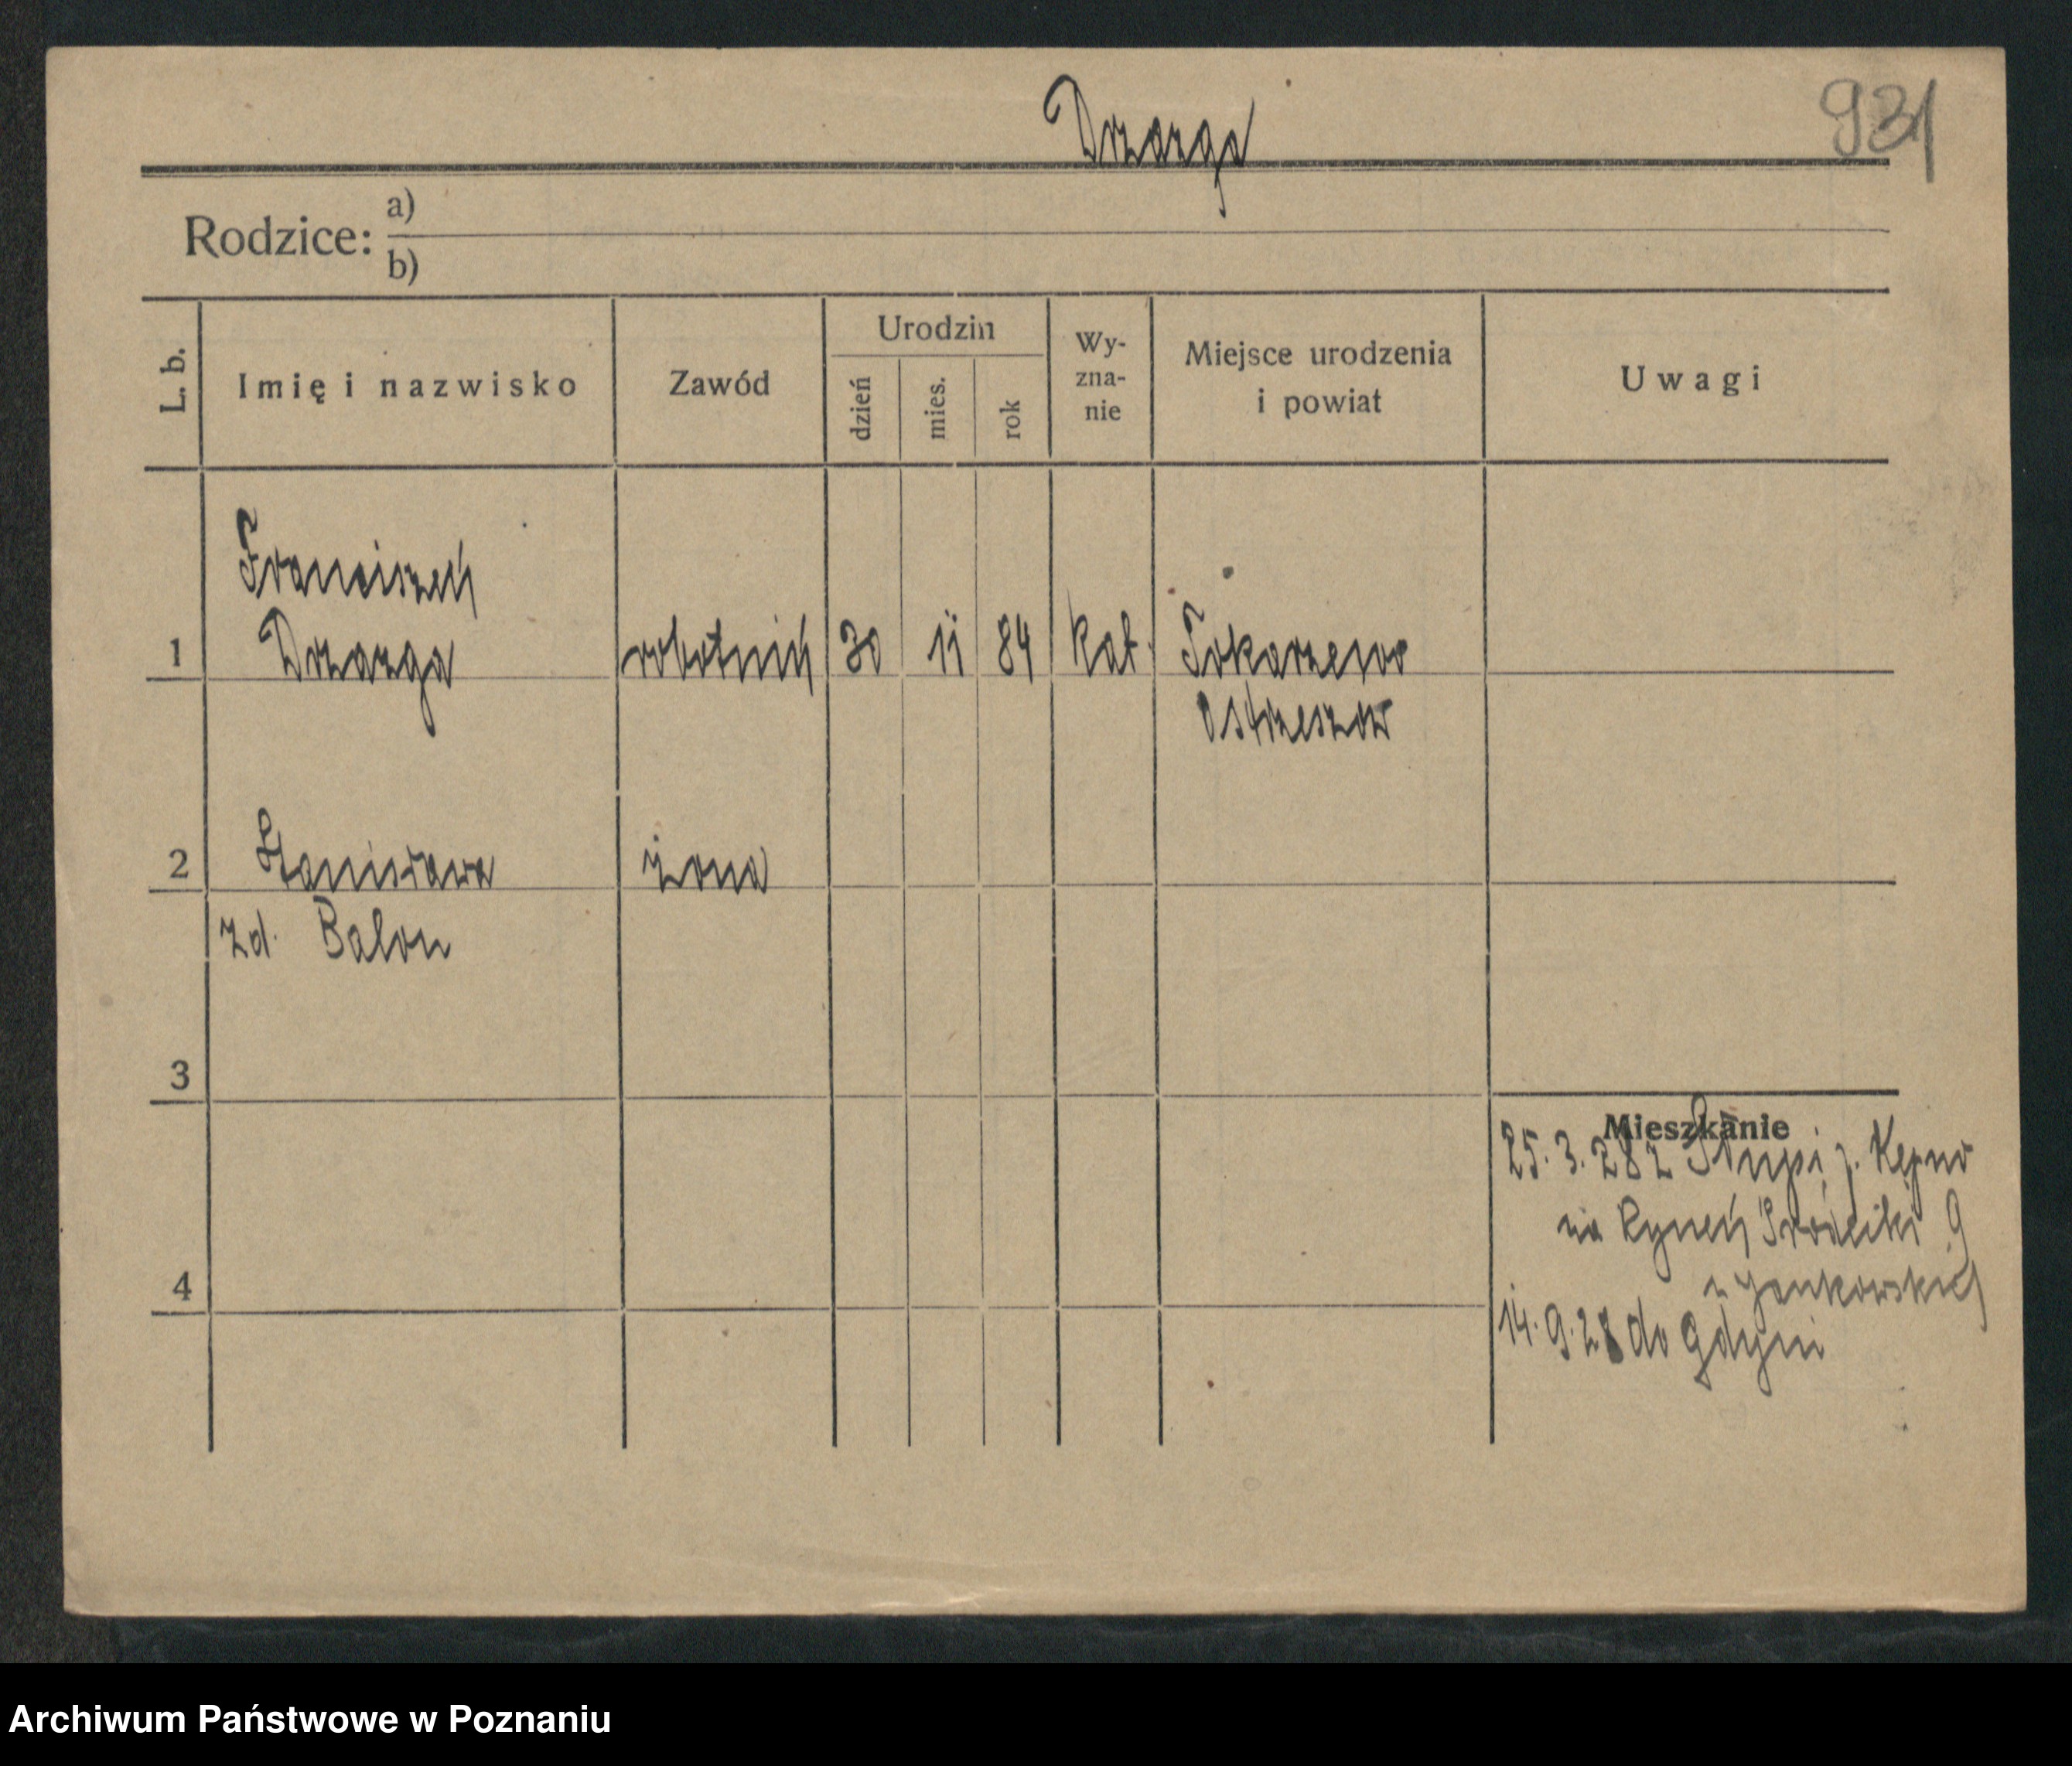 Drzazga
931
Rodzice: a)
b)
L. b.
Imię i nazwisko
Zawód
Urodzin
dzień
mies.
rok
Wy-
zna-
nie
Miejsce urodzenia
i powiat
Uwagi
Franciszek
1 Drzazga robotnik 30 11 84 kat. Tokarzewo
Ostrzeszow
2 Stanisława żona
zd. Balon
3
Mieszkanie
25. 3. 28 z Słupi p. Kępno
na Rynek Śródecki 9
u Jankowskich
4
14. 9. 28 do Gdyni
Archiwum Państwowe w Poznaniu